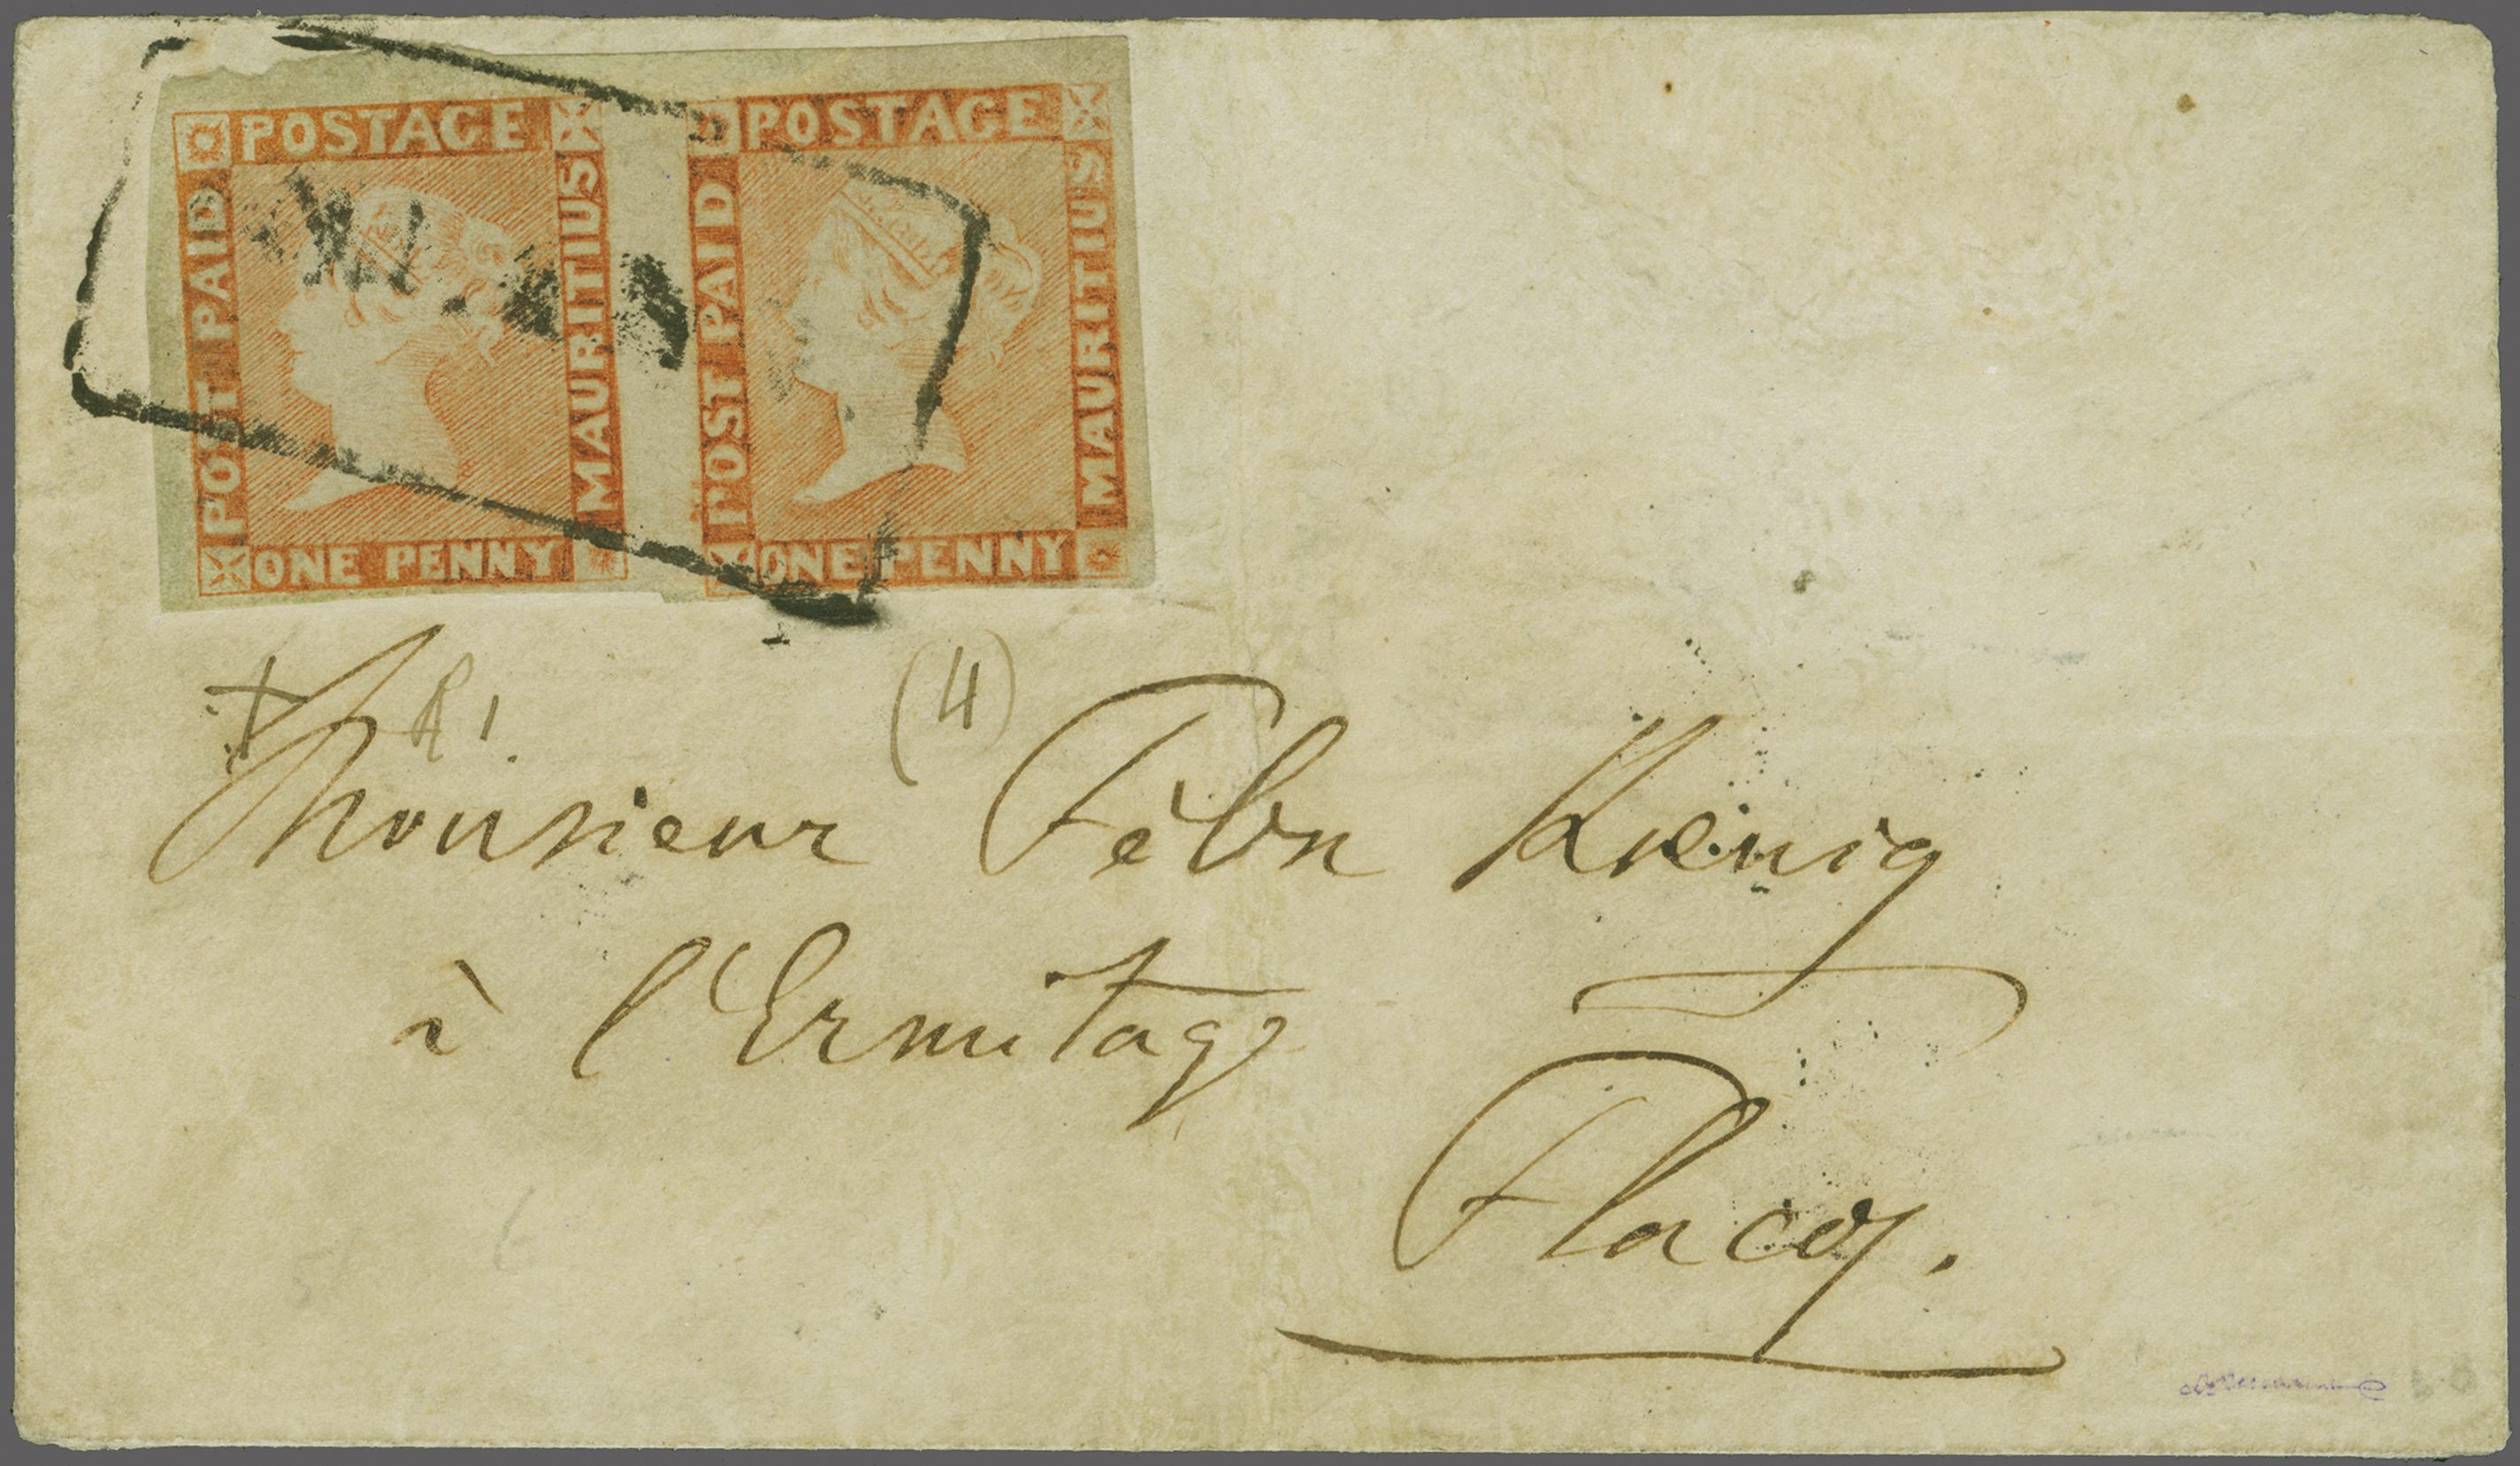 POSTAGE
POST PAID
MAURITIUS
ONE PENNY
POSTAGE
POST PAID
MAURITIUS
ONE PENNY
R 1
(4)
Monsieur Félix Kœnig
à l'Ermitage
Flacq.